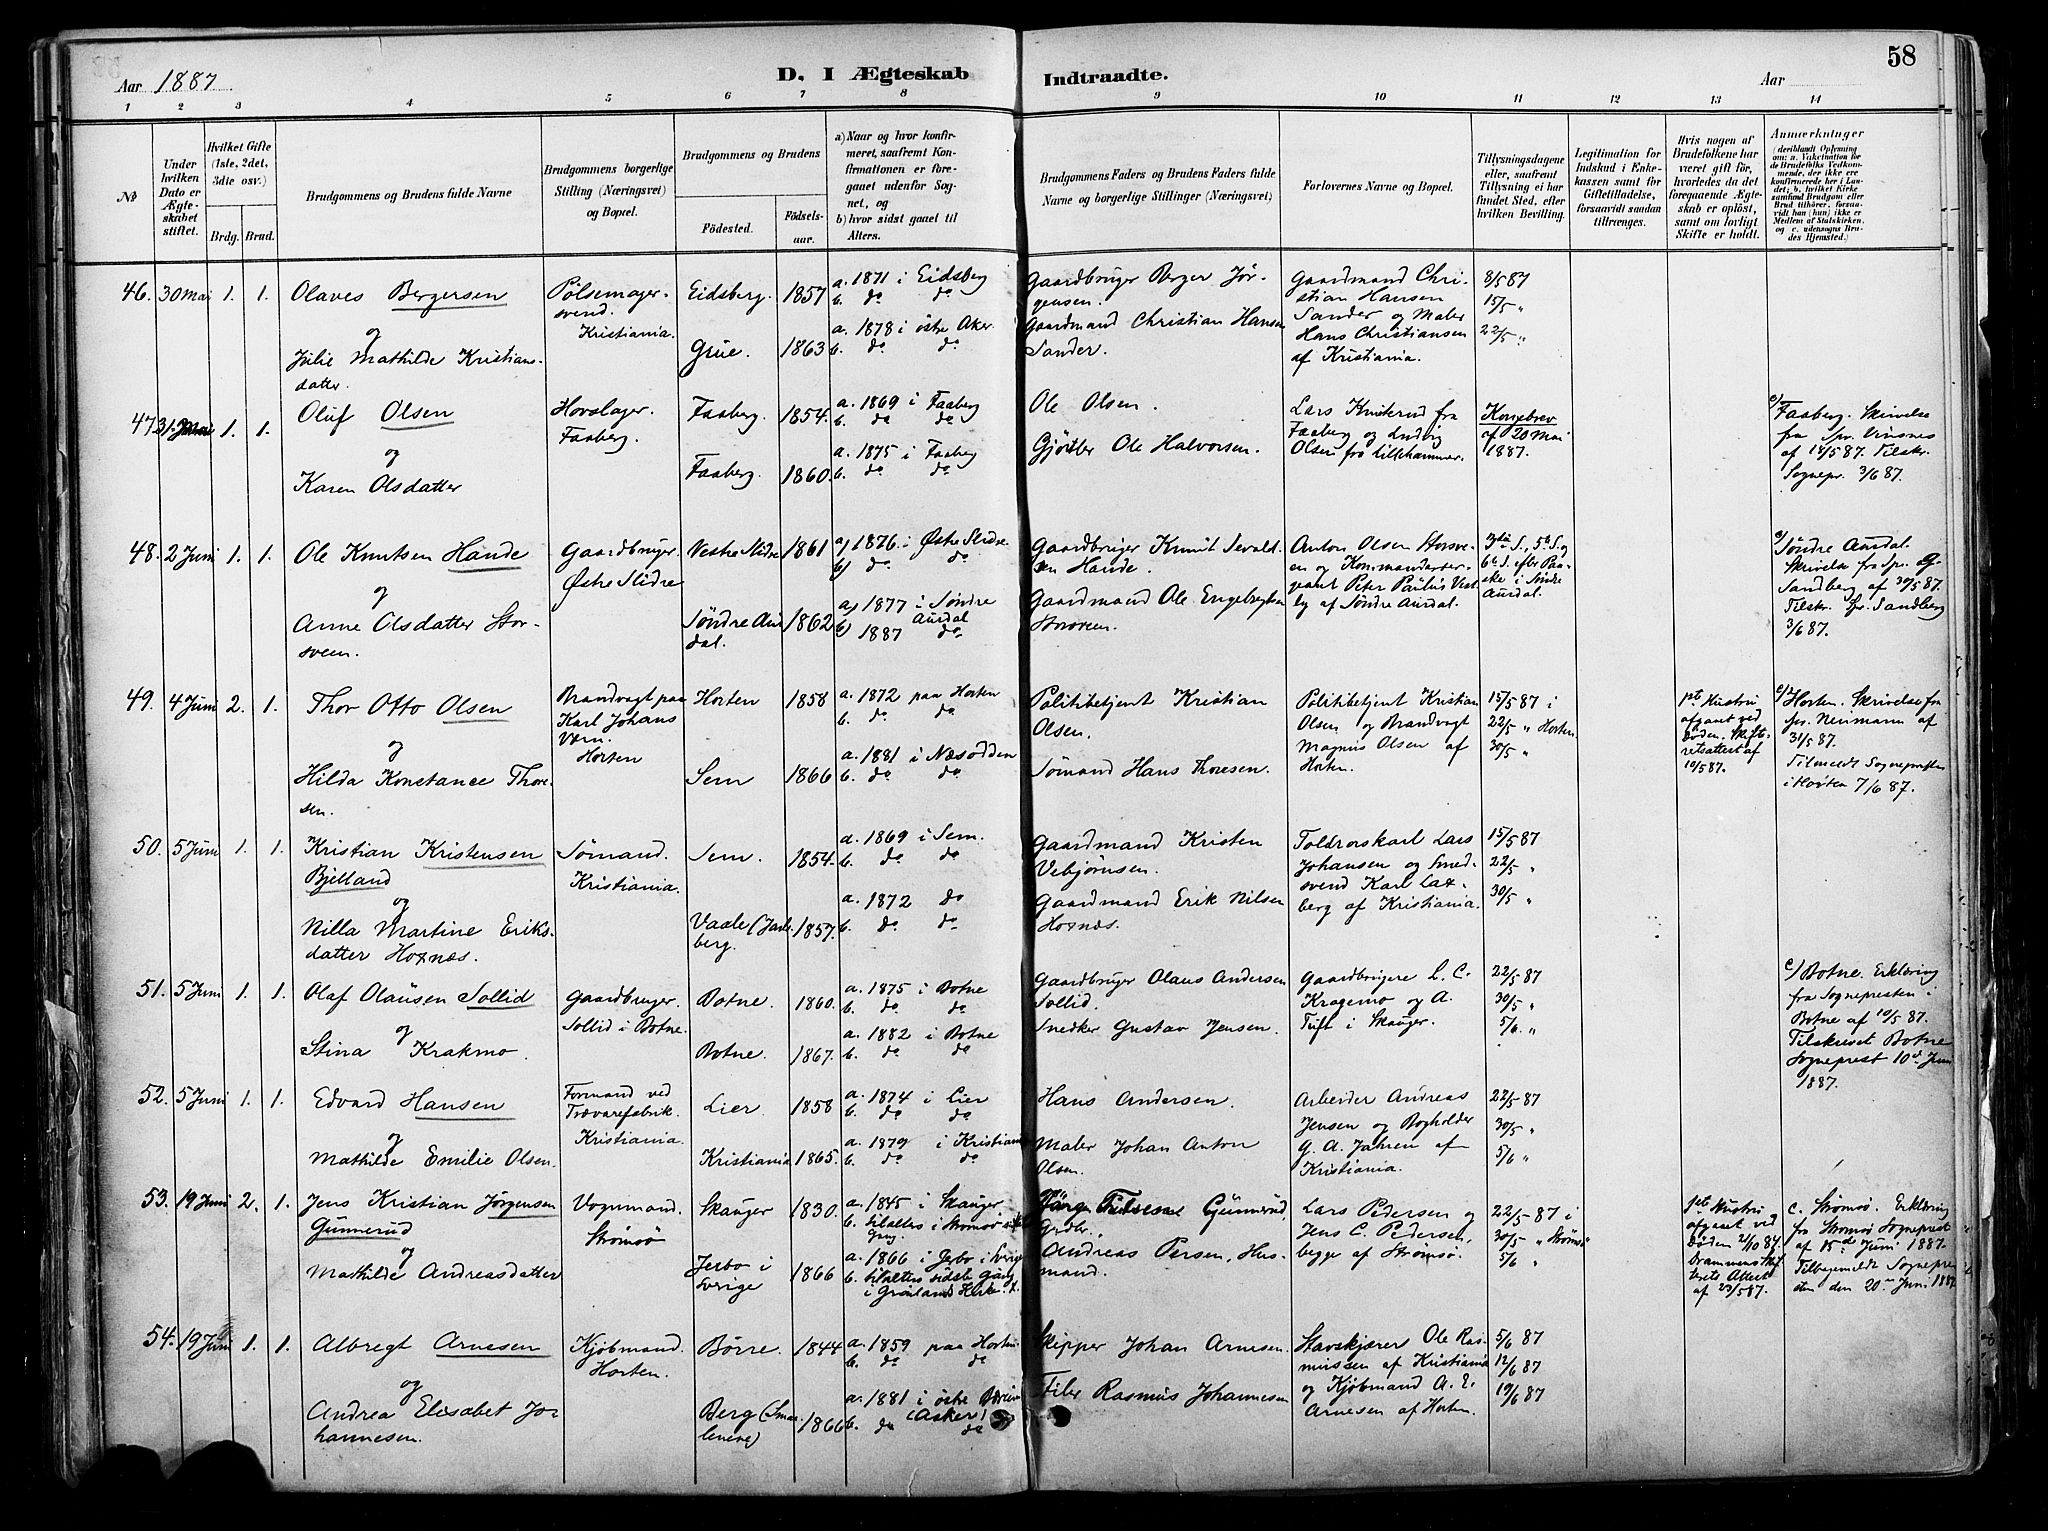 58
Aar 1887.
D. I Ægteskab Indtraadte.
Aar
1 2 3 4 5 6 7 8 9 10 11 12 13 14
No
Under hvilken Dato er Ægteskabet stiftet.
Hvilket Gifte (1ste, 2det, 3die osv.)
Brdg. Brud.
Brudgommens og Brudens fulde Navne
Brudgommens borgerlige Stilling (Næringsvei) og Bopæl.
Brudgommens og Brudens
Födested. Födselsaar.
a) Naar og hvor konfirmeret, saafremt Konfirmationen er foregaaet udenfor Sognet, og
b) hvor sidst gaaet til Alters.
Brudgommens Faders og Brudens Faders fulde Navne og borgerlige Stillinger (Næringsvei)
Forlovernes Navne og Bopæl.
Tillysningsdagene eller, saafremt Tillysning ei har fundet Sted, efter hvilken Bevilling.
Legitimation for Indskud i Enkekassen samt for Giftetilladelse, forsaavidt saadan tiltrænges.
Hvis nogen af Brudefolkene har været gift før, hvorledes da det foregaaende Ægteskab er oplöst, samt om lovligt Skifte er holdt.
Anmærkninger (deriblandt Oplysning om: a. Vakcination for de Brudefolks Vedkommende, der ikke ere konfirmerede her i Landet; b. hvilket Kirkesamfund Brudgom eller Brud tilhörer, forsaavidt han (hun) ikke er Medlem af Statskirken, og c. udensogns Brudes Hjemsted.)
46. 30 Mai 1. 1.
Olaves Bergersen
og
Julie Mathilde Kristiansdatter.
Pølsemagersvend. Kristiania.
Eidsberg. 1857
Grue. 1863
a. 1871 i Eidsberg
b. do do
a. 1878 i østre Aker.
b. do do
Gaardbruger Berger Jørgensen.
Gaardmand Christian Hansen Sander.
Gaardmand Christian Hansen Sander og Maler Hans Christiansen af Kristiania.
8/5 87
15/5 "
22/5 "
47. 31 Mai 1. 1.
Oluf Olsen
og
Karen Olsdatter
Hovslager. Faaberg.
Faaberg. 1854.
Faaberg. 1860.
a. 1869 i Faaberg
b. do do
a. 1875 i Faaberg
b. do do
Ole Olsen.
Gjørtler Ole Halvorsen.
Lars Knuterud fra Faaberg og Ludvig Olsen fra Lillehammer.
Kongebrev af 20 Mai 1887.
c) Faaberg. Skrivelse fra Spr. Vinsnes af 18/5 87. Tilskr. Sognepr. 3/6 87.
48. 2 Juni 1. 1.
Ole Knutsen Hande
og
Anne Olsdatter Storsveen.
Gaardbruger Østre Slidre
Vestre Slidre 1861
Søndre Aurdal. 1862
a) 1876 i Østre Slidre
b) do do
a) 1877 i Søndre Aurdal
b) 1887 do
Gaardbruger Knut Sevaldsen Hande.
Gaardmand Ole Engebregtsen Storsveen.
Anton Olsen Storsveen og Kommandersergeant Peter Paulus Vestby af Søndre Aurdal.
3die S., 5te S. og 6te S. efter Paaske i Søndre Aurdal.
c) Søndre Aurdal. Skrivelse fra Spr. G. Sandberg af 30/5 87. Tilskr. Spr. Sandberg 3/6 87.
49. 4 Juni 2. 1.
Thor Otto Olsen
og
Hilda Konstance Thoresen.
Brandvagt paa Karl Johans Værn. Horten
Horten 1858
Sem 1866
a. 1872 paa Horten
b. do do
a. 1881 i Næsodden
b. do do
Politibetjent Kristian Olsen.
Sømand Hans Thoresen.
Politibetjent Kristian Olsen og Brandvagt Magnus Olsen af Horten.
15/5 87 i
22/5 " Horten
30/5 "
1ste Hustru afgaaet ved Døden. Skifteretsattest af 10/5 87.
c) Horten. Skrivelse fra Spr. Neumann af 31/5 87. Tilmeldt Sognepresten i Horten 7/6 87.
50. 5 Juni 1. 1.
Kristian Kristensen Bjelland
og
Nilla Martine Eriksdatter Hoxnæs.
Sømand. Kristiania.
Sem. 1854.
Vaale (Jarlsberg. 1857.
a. 1869 i Sem.
b. do do
a. 1872 do
b. do do
Gaardmand Kristen Vebjørnsen.
Gaardmand Erik Nilsen Hoxnæs.
Toldrorskarl Lars Johansen og Smedsvend Karl Laxberg af Kristiania.
15/5 87
22/5 "
30/5 "
51. 5 Juni 1. 1.
Olaf Olausen Sollid
og
Stina Krakmo.
Gaardbruger. Sollid i Botne.
Botne. 1860.
Botne. 1867.
a. 1875 i Botne
b. do do
a. 1882 i Botne
b. do do
Gaardbruger Olaus Andersen Sollid.
Snedker Gustav Jensen.
Gaardbrugere L. C. Kragemo og A. Tuft i Skauger.
22/5 87
30/5 "
5/6 "
c) Botne. Erklæring fra Sognepresten i Botne af 10/5 87. Tilskrevet Botne Sogneprest 10de Juni 1887.
52. 5 Juni 1. 1.
Edvard Hansen
og
Mathilde Emilie Olsen.
Formand ved Trævarefabrik. Kristiania.
Lier. 1858
Kristiania 1865.
a. 1874 i Lier
b. do do
a. 1879 i Kristiania
b. do do
Hans Andersen.
Maler Johan Anton Olsen.
Arbeider Andreas Jensen og Bogholder G. A. Jahren af Kristiania.
22/5 87
30/5 "
5/6 "
53. 19 Juni 2. 1.
Jens Kristian Jørgensen Gunnerud
og
Mathilde Andreasdatter
Vognmand. Strømsø
Skauger 1830.
Jerbo i Sverige 1866
a. 1845 i Skauger
b. tilalters i Strømsø
a. 1866 i Jerbo i Sverig
b. tilalters sidste Gang i Grønlands Kirke.
Gunnerud, Grdbr.
Andreas Persen, Husmand.
Lars Pedersen og Jens C. Pedersen, begge af Strømsø.
22/5 87 i
30/5 " Strømsø
5/6 "
1ste Hustru afgaaet ved Døden 2/10 84. Drammens Skifterets Attest af 23/5 87.
c. Strømsø. Erklæring fra Strømsø Sogneprest af 15de Juni 1887. Tilbagemeldt Sognepresten den 20de Juni 1887
54. 19 Juni 1. 1.
Albregt Arnesen
og
Andrea Elisabet Johannesen.
Kjøbmand. Horten.
Børre. 1844
Berg (Smaalenene) 1866
a. 1859 paa Horten
b. do do
a. 1881 i østre
b. do (Asker) do
Skipper Johan Arnesen.
Filer Rasmus Johannesen
Stavskjærer Ole Rasmussen af Kristiania og Kjøbmand A. E. Arnesen af Horten.
5/6 87
12/6 87
19/6 87